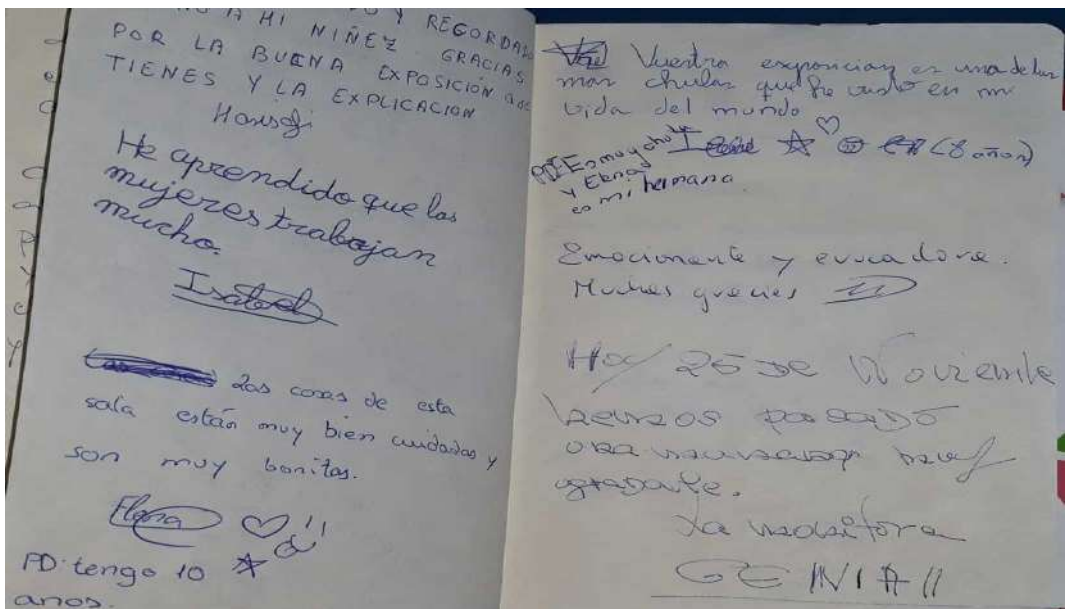 A MI NIÑEZ Y RECORDAR
POR LA BUENA GRACIAS
TIENES Y LA EXPOSICIÓN QUE
EXPLICACION
He aprendido que las
mujeres trabajan
mucho.
Isabel
Las cosas de esta
sala están muy bien cuidadas y
son muy bonitas.
Elena
PD: tengo 10
anos.
Vuestra exposicion es una de las
mas chulas que he visto en mi
vida del mundo
Irene (8 años)
PD: Es muy chula
y Elena
es mi hermana.
Emocionante y evocadora.
Muchas gracias
Hoy 25 DE Noviembre
hemos pasado
una mañana muy
agradable.
La monitora
GENIAL